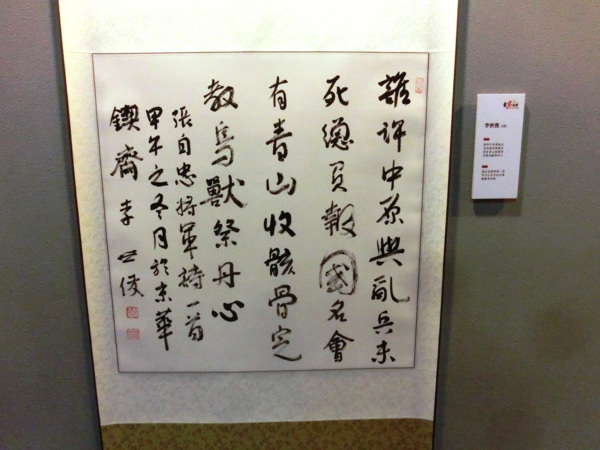 誰許中原與亂兵未
死總負報國名會
有青山收骸骨定
教鳥獸祭丹心
張自忠將軍詩一首
甲午之冬月於京華
鍥齋李世俊